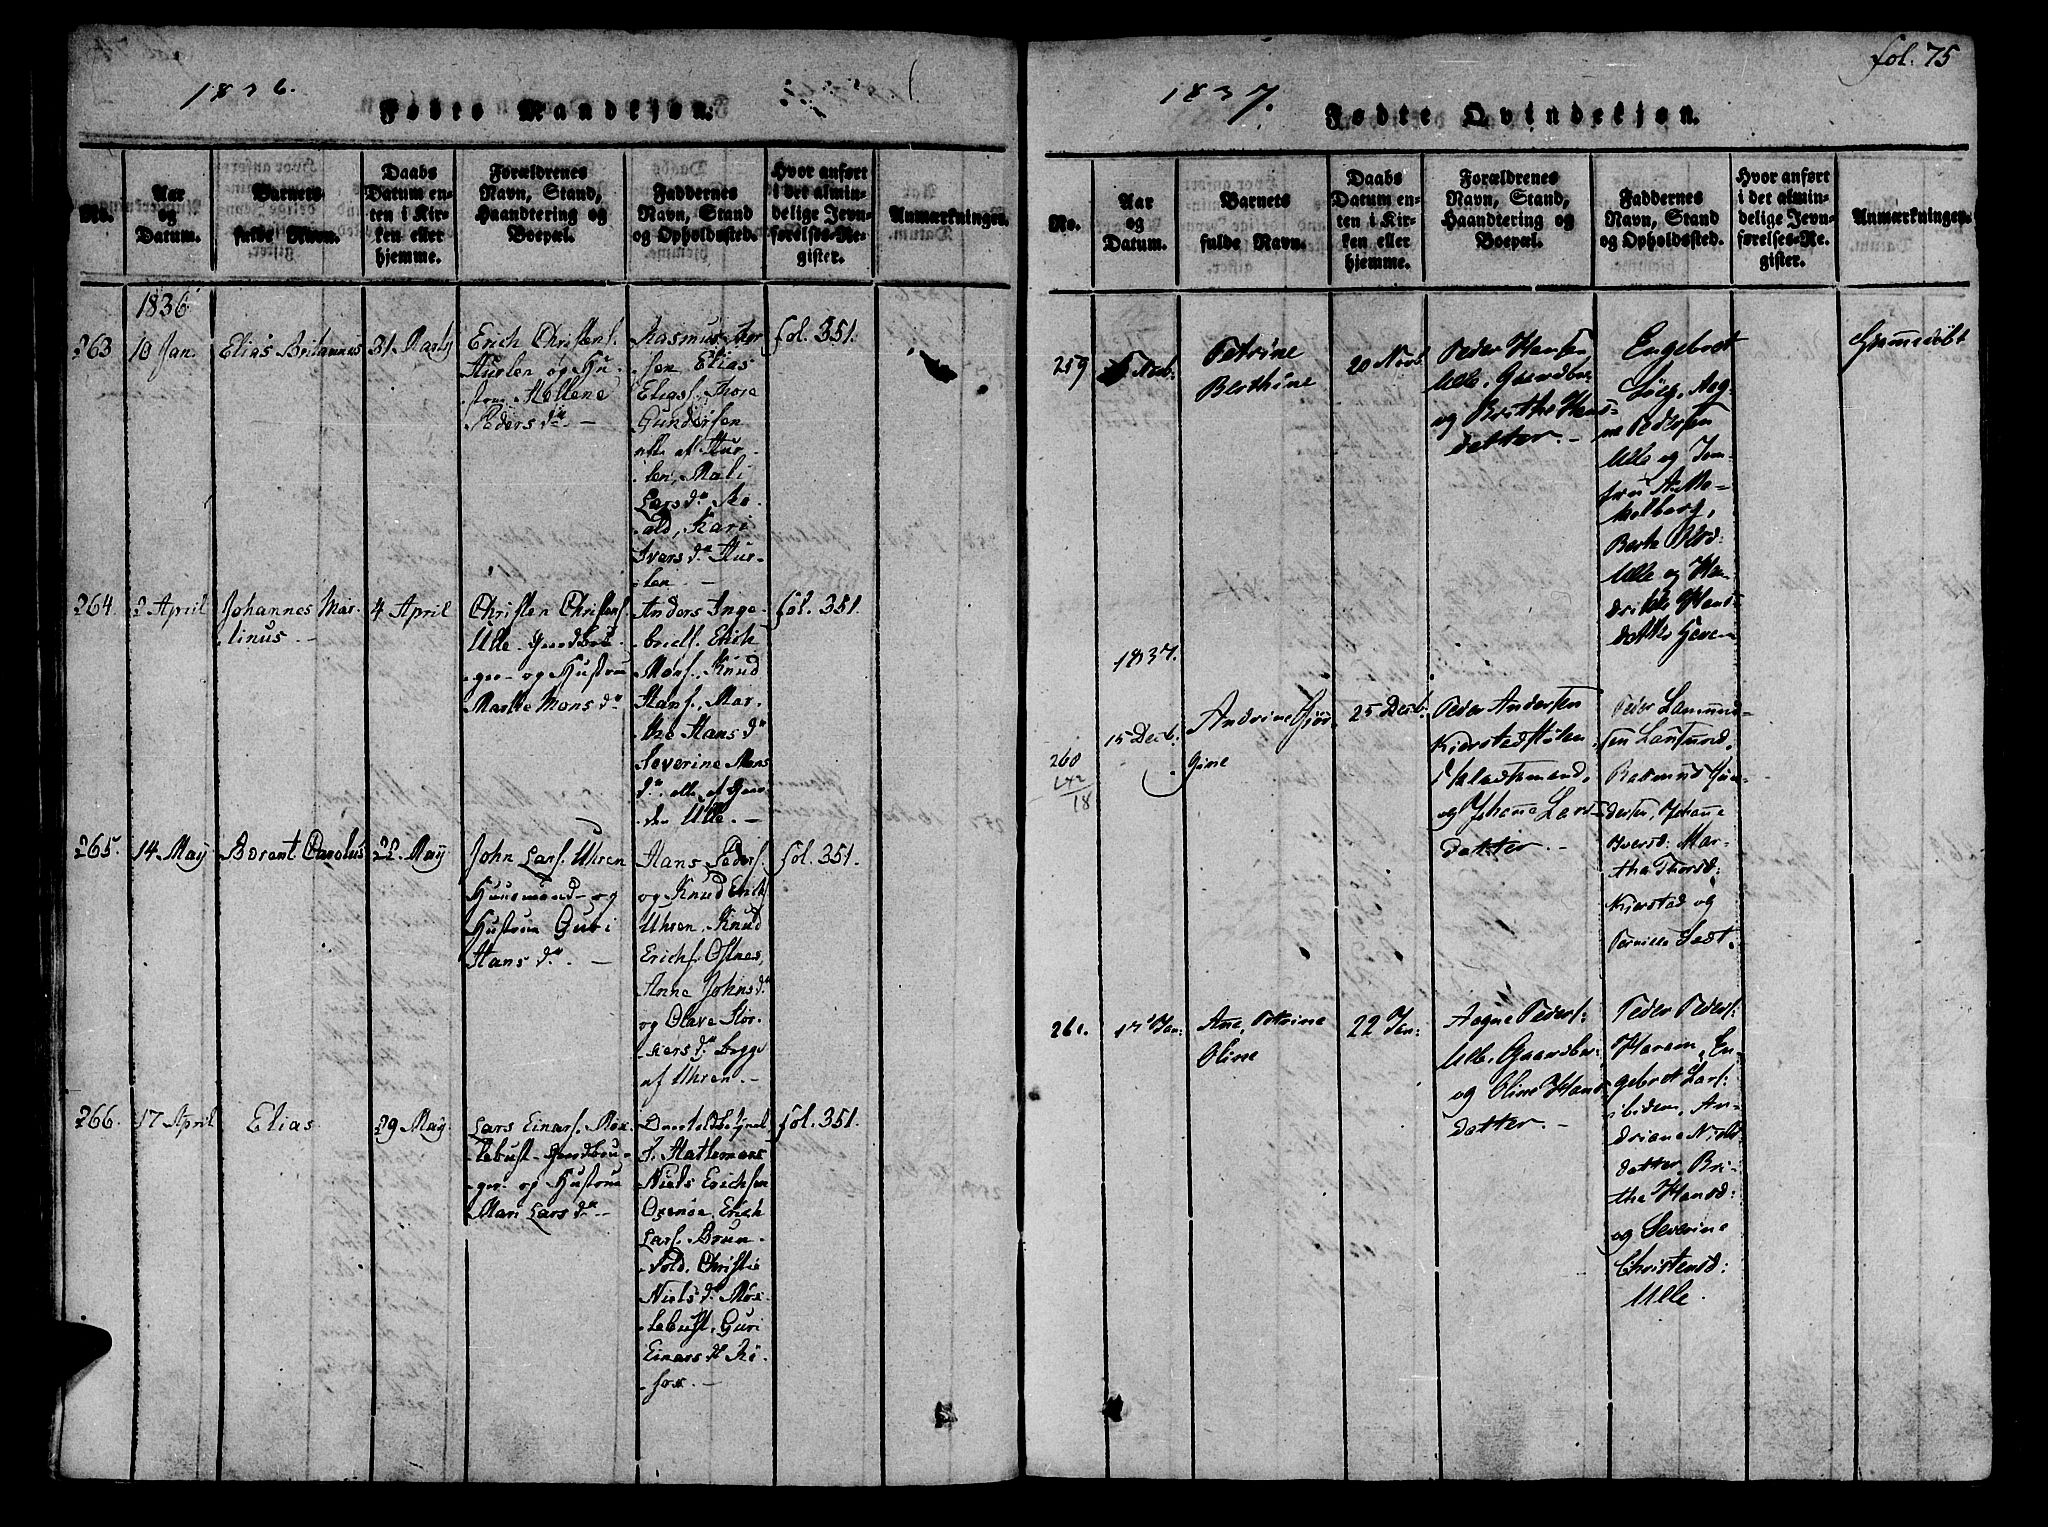 1836.
Fødte Mandkjøn.
No.
Aar
og
Datum.
Barnets
fulde Navn.
Daabs
Datum en-
ten i Kir-
ken eller
hjemme.
Forældrenes
Navn, Stand,
Haandtering og
Boepæl.
Faddernes
Navn, Stand
og Opholdssted.
Hvor anført
i det almin-
delige Jevn-
førelses-Re-
gister.
Anmærkninger.
1836
263
10 Jan.
Elias
31
Erich Christens.
og Hu-
Hellene
Peders dr.
Rasmus
sen Elias
Eliass. Thore
Gundersen
alle af Hur-
len, Mali
Lars dr.
Kari
Ivers dr. Hur-
len.
fol. 351.
264.
2 April
Johannes Mar-
tinus
4 April
Christen Christens.
Ulle Gaardbru-
ger og Hustrue
Marthe Mons dr.
Anders Inge-
brets. Erich
Mons. Knud
Hans. Mar-
the Hans dr.
Severine Mons
dr. alle af Gaar-
den Ulle.
fol. 351.
265.
14 May
Berent Carolus
22 May
John Lars. Uhren
Huusmand og
Hustrue Guri
Hans dr.
Hans Peders.
og Knud Erich
Uhren. Knud
Erichs. Østnes,
Anne Johns dr.
og Olave
dr. begge
af Uhren.
fol. 351.
266.
17 April
Elias
29 May
Lars Einars. Røx-
lebust Gaardbru-
ger og Hustrue
Mari Lars dr.
Niels Erichsen
Oxenøe, Erich
Lars. Brun-
vold. Christie
Niels dr. Røx-
lebust. Guri
Einars dr.
fol. 351.
fol. 75
1837.
Fødte Qvindekjøn.
No.
Aar
og
Datum.
Barnets
fulde Navn.
Daabs
Datum en-
ten i Kir-
ken eller
hjemme.
Forældrenes
Navn, Stand,
Haandtering og
Boepæl.
Faddernes
Navn, Stand
og Opholdssted.
Hvor anført
i det almin-
delige Jevn-
førelses-Re-
gister.
Anmærkninger.
259
Novb:
Petrine
Berthine
20 Novb
Peder Hansen
Ulle, Gaardbr:
og Brithe Hans-
datter.
Engebret
Aag-
ne Pedersen
Ulle og Jom-
fru
Berthe
Ulle og Hen-
drikke Hans-
datter
Hjemmedøbt
1837.
260
15 Decb.
Andrine Jør-
gine
25 Decb.
Peder Andersen
Kjerstad
Pladsmand,
og Johanne Lars-
datter.
Peder
Rasmus Gun-
dersen, Johanne
Iversd: Mar-
tha Thorsd:
Kjerstad og
Pernille
261.
17 Jan:
Ane Petrine
Oline
22 Jan:
Aagne Peders:
Ulle, Gaardbr:
og Oline Hans
datter.
Peder Peders:
Haram, En-
gebret Lars:
ibidem, An-
driane Niels
datter, Bri-
tha Hansd:
og Severine
Christensd:
Ulle.